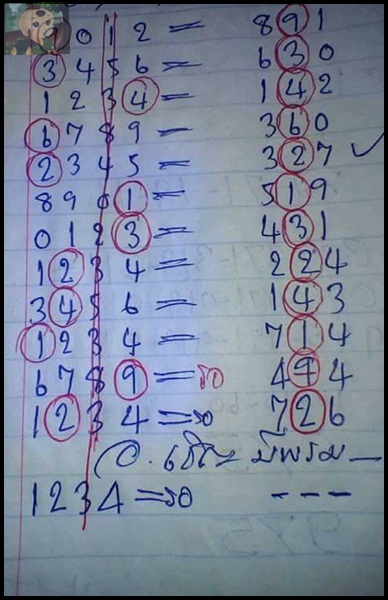 0 1 2 = 8 9 1
3 4 5 6 = 6 3 0
1 2 3 4 = 1 4 2
6 7 8 9 = 3 6 0
2 3 4 5 = 3 2 7 ✓
8 9 0 1 = 5 1 9
0 1 2 3 = 4 3 1
1 2 3 4 = 2 2 4
3 4 5 6 = 1 4 3
1 2 3 4 = 7 1 4
6 7 8 9 = รอ 4 9 4
1 2 3 4 = รอ 7 2 6
อ.
1 2 3 4 = รอ - - -